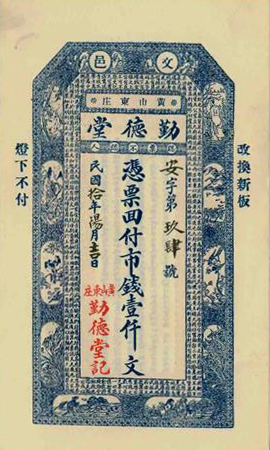 文邑
黃山東庄
勤德堂
認票不認人
改換新板
安字第玖肆號
憑票回付市錢壹仟文
民國拾年湯月吉日
黃山東庄
勤德堂記
燈下不付